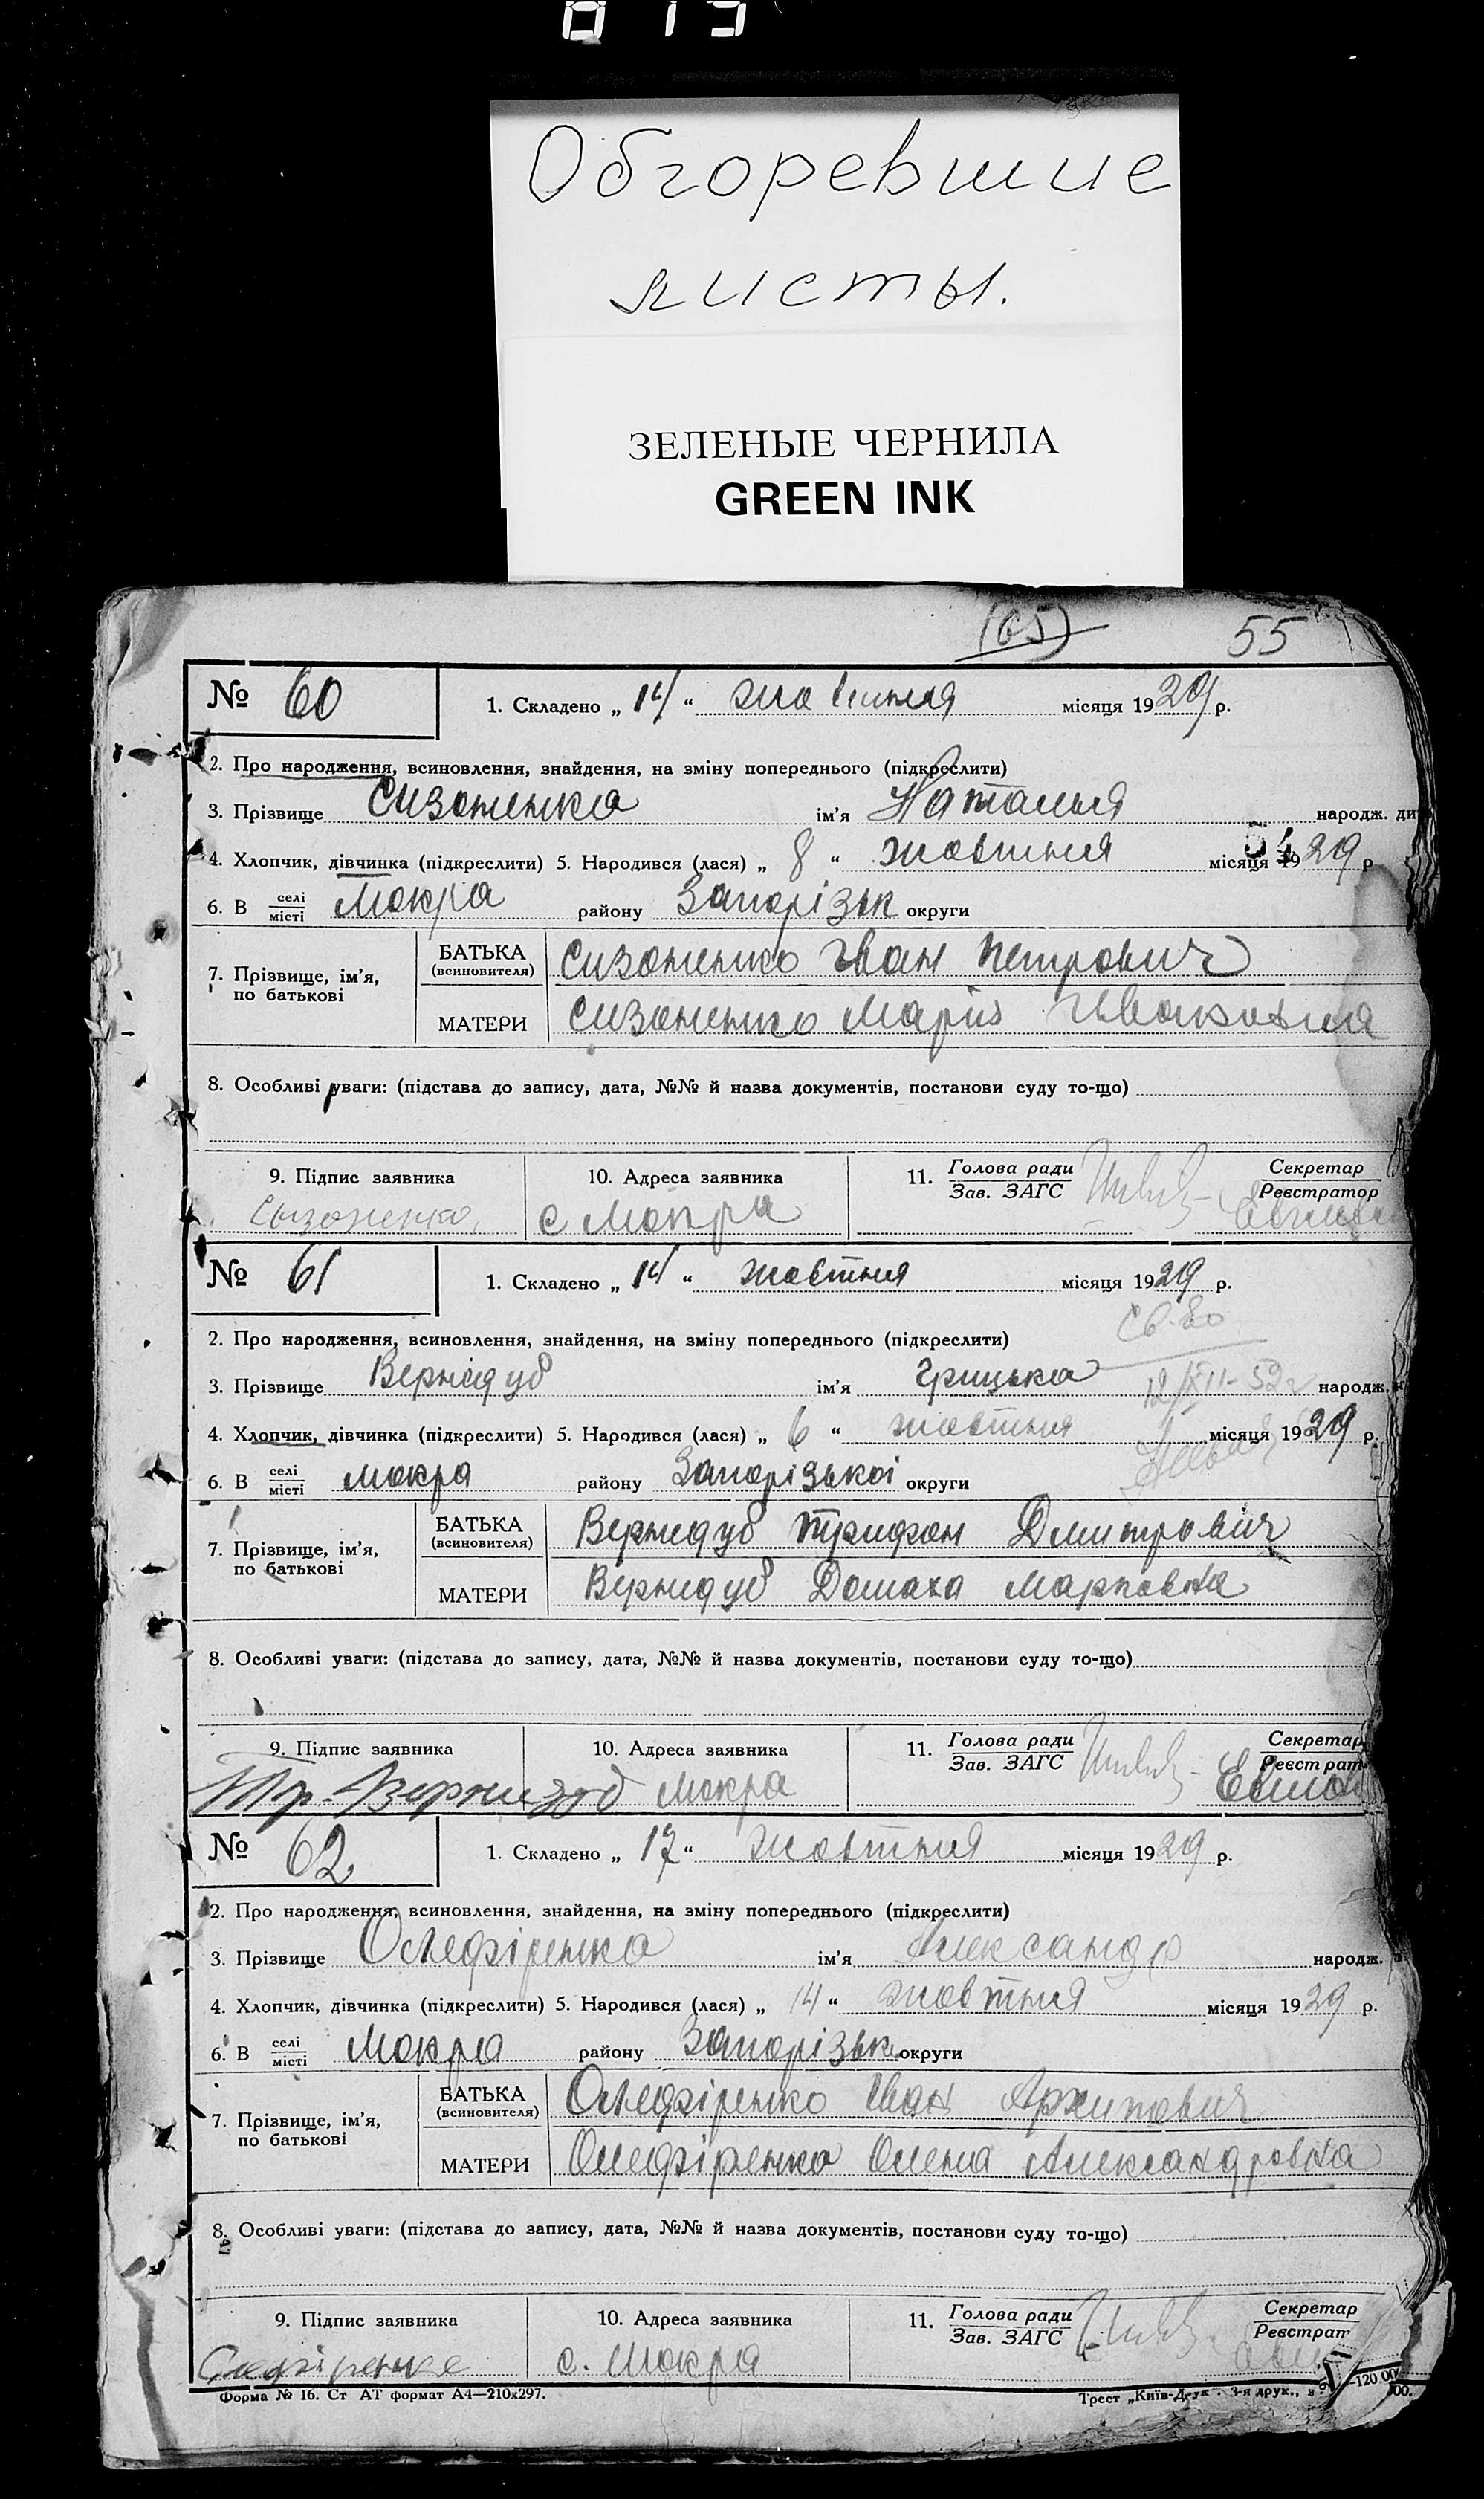 Обгоревшие
листы.
ЗЕЛЕНЫЕ ЧЕРНИЛА
GREEN INK
(65) 55
№ 60 1. Складено „ 14 “ жовтня місяця 1929 р.
2. Про народження, всиновлення, знайдення, на зміну попереднього (підкреслити)
3. Прізвище Сизоненко ім’я Наталья народж. ди
4. Хлопчик, дівчинка (підкреслити) 5. Народився (лася) „ 8 “ жовтня місяця 1929 р
54
6. В селі/місті Мокра району Запорізьк округи
7. Прізвище, ім’я, по батькові
БАТЬКА (всиновителя) Сизоненко Іван Петрович
МАТЕРИ Сизоненко Марія Ивановна
8. Особливі уваги: (підстава до запису, дата, №№ й назва документів, постанови суду то-що)
9. Підпис заявника 10. Адреса заявника 11. Голова ради/Зав. ЗАГС Секретар/Реєстратор
Сызоненко, с Мокра
№ 61 1. Складено „ 14 “ жовтня місяця 1929 р.
2. Про народження, всиновлення, знайдення, на зміну попереднього (підкреслити)
Св-во
3. Прізвище Вернидуб ім’я Грицько народж.
12/XII-52г
4. Хлопчик, дівчинка (підкреслити) 5. Народився (лася) „ 6 “ жовтня місяця 1929 р.
6. В селі/місті Мокра району Запорізької округи
7. Прізвище, ім’я, по батькові
БАТЬКА (всиновителя) Вернидуб Трифон Дмитрович
МАТЕРИ Вернидуб Домаха Марковна
8. Особливі уваги: (підстава до запису, дата, №№ й назва документів, постанови суду то-що)
9. Підпис заявника 10. Адреса заявника 11. Голова ради/Зав. ЗАГС Секретар/Реєстрат
Тр. Мокра
№ 62 1. Складено „ 17 “ жовтня місяця 1929 р.
2. Про народження, всиновлення, знайдення, на зміну попереднього (підкреслити)
3. Прізвище Олефіренко ім’я Александр народж.
4. Хлопчик, дівчинка (підкреслити) 5. Народився (лася) „ 14 “ жовтня місяця 1929 р.
6. В селі/місті Мокра району Запорізьк округи
7. Прізвище, ім’я, по батькові
БАТЬКА (всиновителя) Олефіренко Іван Архипович
МАТЕРИ Олефіренко Олена Александровна
8. Особливі уваги: (підстава до запису, дата, №№ й назва документів, постанови суду то-що)
9. Підпис заявника 10. Адреса заявника 11. Голова ради/Зав. ЗАГС Секретар/Реєстрат
с. Мокра
Форма № 16. Ст АТ формат А4—210х297. Трест „Київ-Друк“. 3-я друк.,